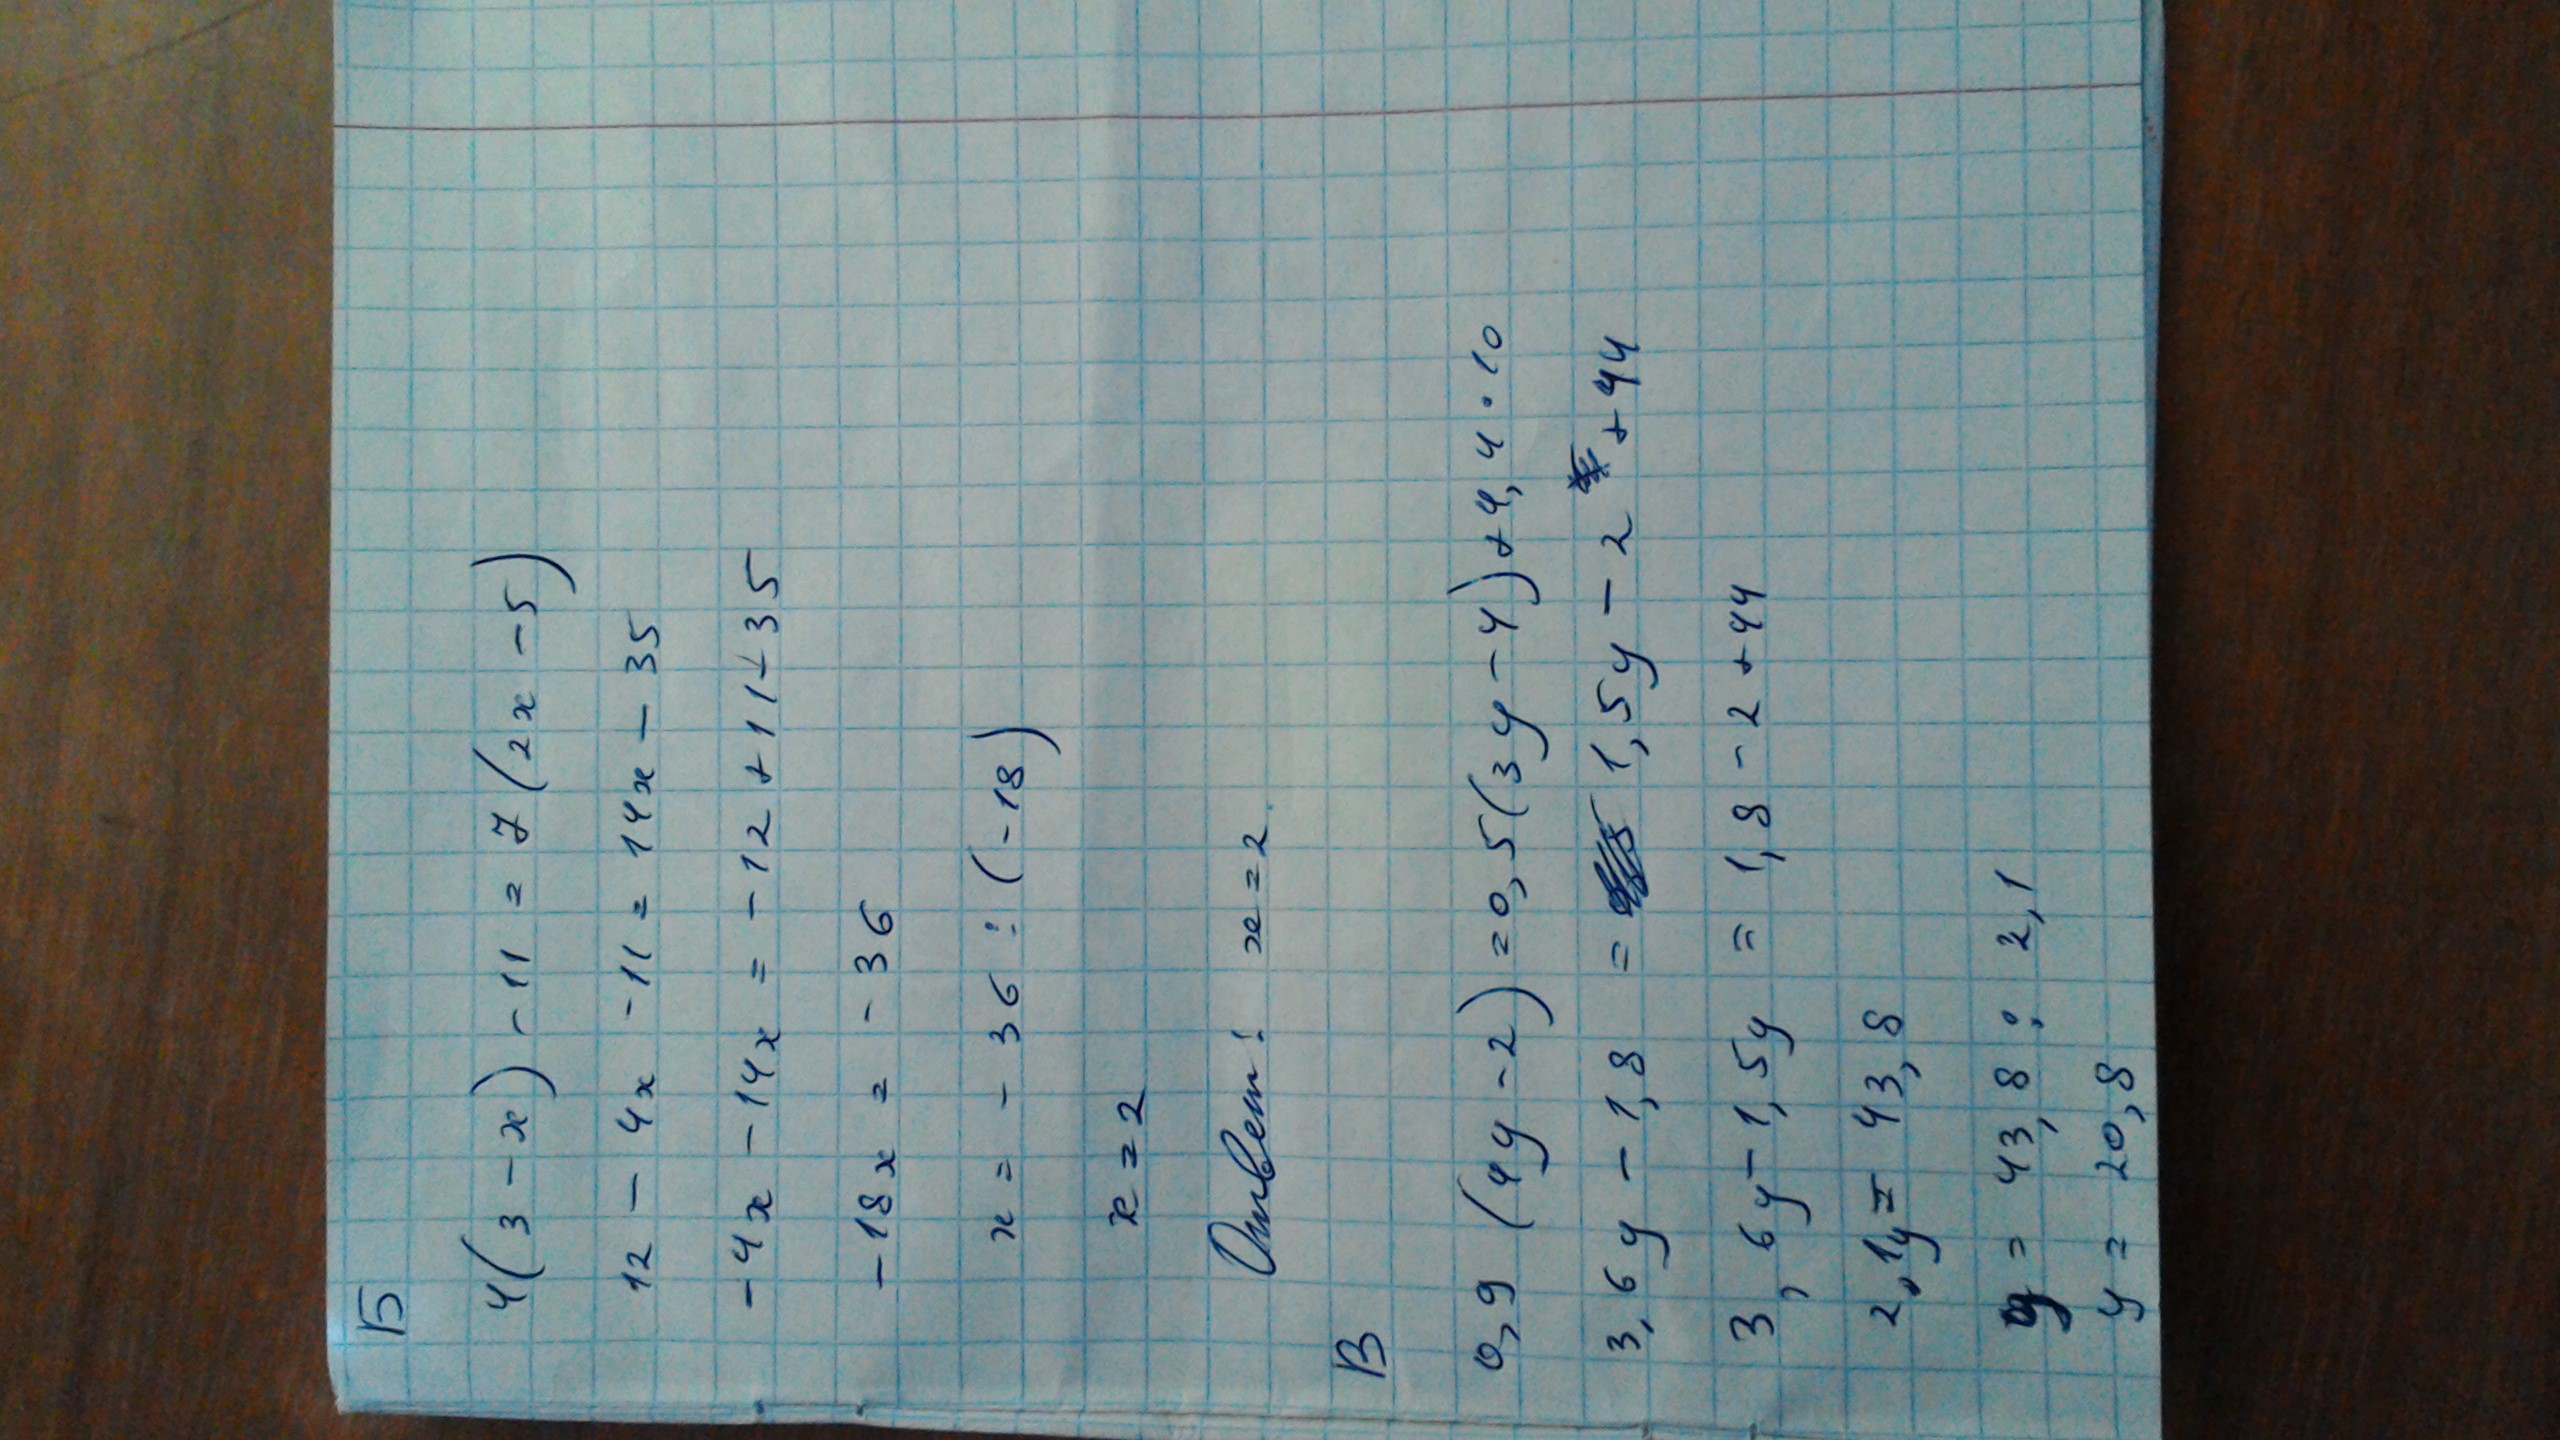 Б
4(3-x)-11=7(2x-5)
12-4x-11=14x-35
-4x-14x=-12+11+35
-18x=-36
x=-36:(-18)
x=2
Ответ: x=2.
В
0,9 (4y-2)=0,5(3y-4)+4,4·10
3,6y-1,8 = 1,5y-2+44
3,6y-1,5y = 1,8-2+44
2,1y= 43,8
y = 43,8 : 2,1
y = 20,8